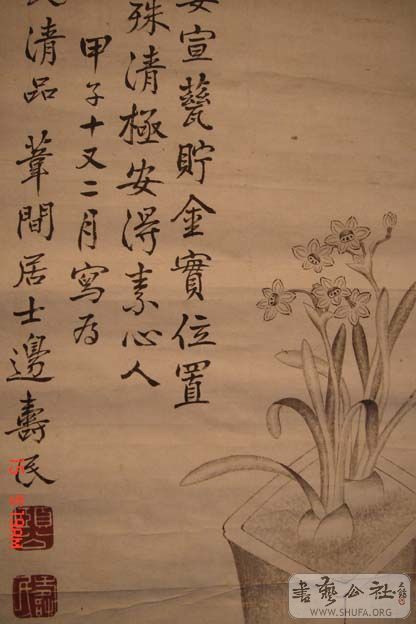 宣甆貯金實位置
殊清極安得素心人
甲子十又二月寫為
清品 葦間居士邊壽民
頤公
書藝公社
WWW.SHUFA.ORG